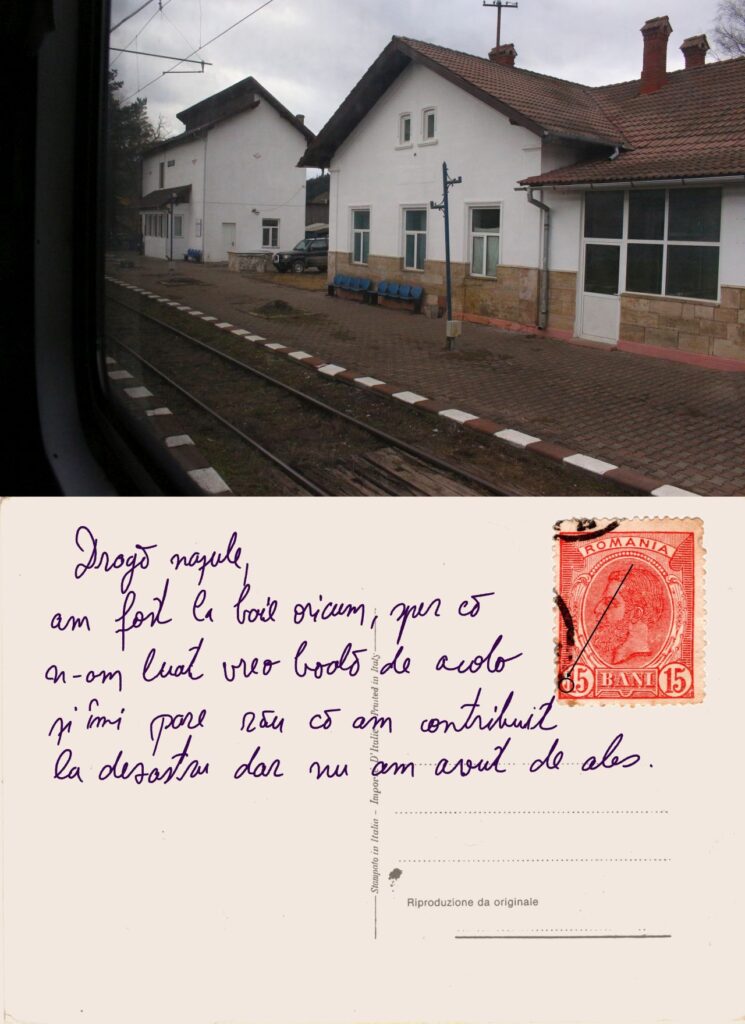 Dragă nașule,
am fost la baie oricum, sper că
n-am luat vreo boală de acolo
și îmi pare rău că am contribuit
la dezastru dar nu am avut de ales.
ROMANIA
15 BANI 15
Stampato in Italia - Import D'Italie - Printed in Italy
Riproduzione da originale